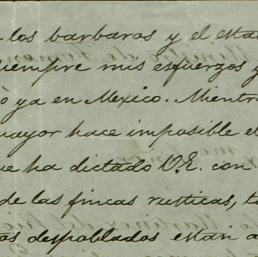 los barbaros y el
siempre mis esfuerzos y
ya en Mexico. Mientr
mayor hace imposible e
ue ha dictado V.E. con
de las fincas rusticas, t
as despoblados estan a